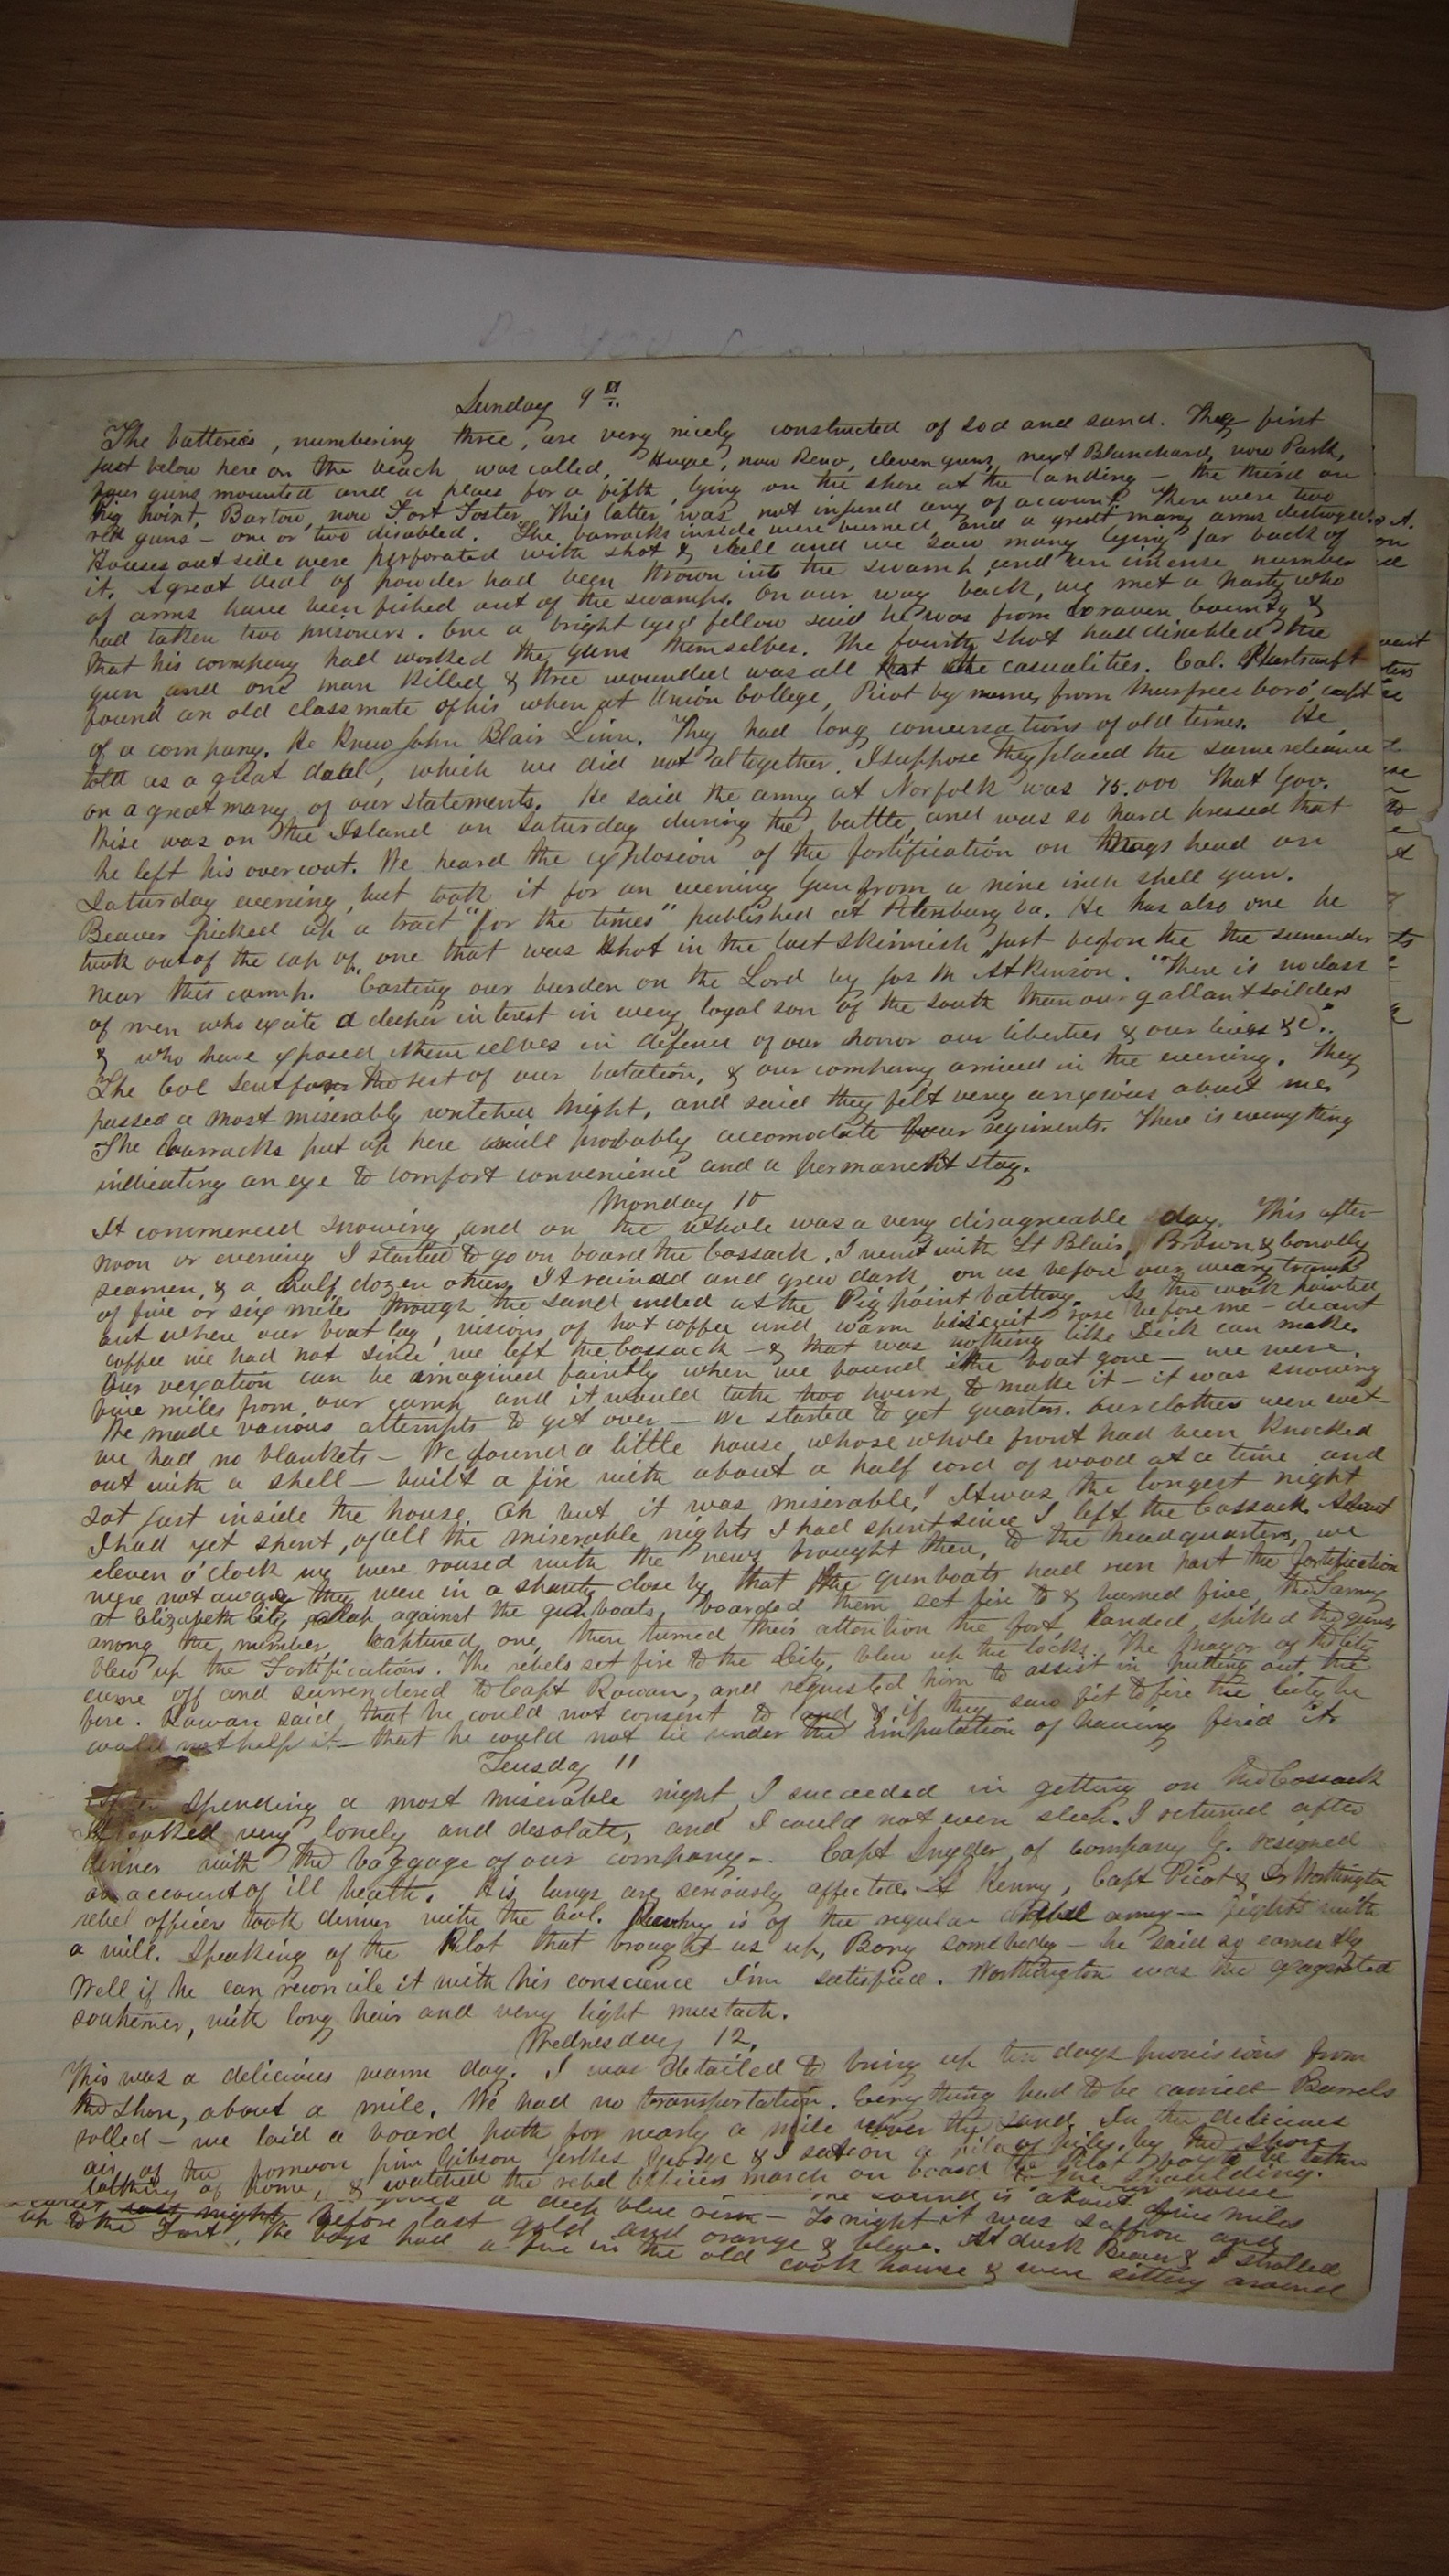 Sunday 9th.
The batteries, numbering three, are very nicely constructed of sod and sand. The first
just below here on the beach was called, Huger, now Reno, eleven guns, next Blanchard, now Park,
four guns mounted and a place for a fifth, lying on the shore at the landing - the third on
Pig Point, Bartow, now Fort Foster. This latter was not injured any of account. There were two
rifle guns - one or two disabled. The barracks inside were burned and a great many arms destroyed.
Houses out side were perforated with shot & shell and we saw many lying far back of
it. A great deal of powder had been thrown into the swamp, and an imense number
of arms have been fished out of the swamps. On our way back, we met a party who
had taken two prisoners. One a bright eyed fellow said he was from Craven County &
that his company had worked the guns themselves. The fourth shot had disabled the
gun, and one man killed & three wounded was all the casualities. Col. Hartranft
found an old classmate of his when at Union College, Picot by name, from Murfreesboro, capt
of a company. He knew John Blair Linn. They had long conversations of old times. He
told us a great deal, which we did not altogether. I suppose they placed the same reliance
on a great many of our statements. He said the army at Norfolk was 75.000 That Gov.
Wise was on the Island on Saturday during the battle, and was so hard pressed that
he left his overcoat. We heard the explosion of the fortification on Nags head on
Saturday evening, but took it for an evening Gun from a nine inch shell gun.
Beaver picked up a tract "for the times" published at Petersburg Va. He has also one he
took out of the cap of, one that was shot in the last skirmish just before the the surrender
near this camp. Casting our burden on the Lord by Jos M Atkinson. "There is no class
of men who excite a deeper interest in every loyal son of the south than our gallant soilders
& who have exposed themselves in defence of our honor our liberties & our lives &c".
The Col sent for the rest of our batalion, & our company arrived in the evening. They
passed a most miserably wretched night, and said they felt very anxious about me.
The barracks put up here will probably accomodate four regiments. There is everything
indicating an eye to comfort convenience and a permanent stay.
Monday 10
It commenced snowing, and on the whole was a very disagreable day. This after-
noon or evening I started to go on board the Cossack. I went with Lt Blair, Brown & Conolly
seamen, & a half dozen others. It rained and grew dark, on us before our weary tramp
of five or six miles through the sand ended at the Pig point battery. As the cook pointed
out where our boat lay, visions of hot coffee and warm biscuit rose before me - decent
coffee we had not since we left the Cossack - & that was nothing like Dick can make.
Our vexation can be imagined faintly when we found the boat gone - we were
five miles from our camp and it would take two hours to make it - it was snowing
We made various attempts to get over - We started to get quarters. Our clothes were wet
we had no blankets - We found a little house, whose whole front had been knocked
out with a shell - built a fire with about a half cord of wood at a time and
sat just inside the house. Oh but it was miserable! It was the longest night
I had yet spent, of all the miserable nights I had spent since I left the Cossack. About
eleven o'clock we were roused with the news brought there, to the headquarters, we
were not aware they were in a shanty close by, that the gunboats had run past the fortification
at Elizabeth City, against the gunboats, boarded them set fire to & burned five, the Fanny
among the number, captured one, then turned their attention the fort, landed, spiked the guns,
blew up the Fortifications. The rebels set fire to the City, blew up the locks. The mayor of the city
came off and surrendered to Capt Rowan, and requested him to assist in putting out the
fire. Rowan said that he could not consent to land, & if they saw fit to fire the city he
would not help it - that he could not lie under the imputation of having fired it.
Teusday 11
spending a most miserable night, I succeeded in getting on the Cossack
It looked very lonely and desolate, and I could not even sleep. I returned after
dinner with the baggage of our company -. Capt Snyder of company G. resigned
on account of ill health. His lungs are seriously affected. Lt Kenny, Capt Picot & Dr Worthington
rebel officers took dinner with the Col. Kenny is of the regular rebel army - fights with
a will. Speaking of the Pilot that brought us up, Bony somebody - he said so earnestly
Well if he can reconcile it with his conscience I'm satisfied. Worthington was the exagerated
southerner, with long hair and very light mustach.
Wednesday 12.
This was a delicious warm day. I was detailed to bring up ten days provisions from
the shore, about a mile. We had no transportation. Every thing had to be carried - Barrels
rolled - we laid a board path for nearly a mile over the sand. In the delicious
air of the fornoon Jim Gibson & I sat on a pile of piles, by the shore
talking of home, & watched the rebel officers march on board the Pilot boy to be taken
to the Spaulding.
The sound is about five miles
a deep blue rim - To night it was saffron and
night before last gold and orange & blue. At dusk Beaver & I strolled
up to the Fort. The boys had a fire in the old cook house & were sitting around